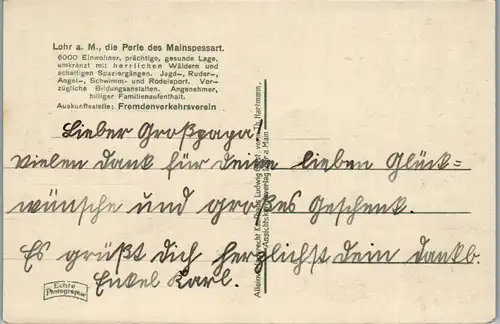 Lohr a. M., die Perle des Mainspessart.
6000 Einwohner, prächtige, gesunde Lage,
umkränzt mit herrlichen Wäldern und
schattigen Spaziergängen. Jagd-, Ruder-,
Angel-, Schwimm- und Rodelsport. Vor-
zügliche Bildungsanstalten. Angenehmer,
billiger Familienaufenthalt.
Auskunftsstelle: Fremdenverkehrsverein
Lieber Großpapa
Vielen Dank für Deine lieben Glück=
wünsche und großes Geschenk.
Es grüßt Dich herzlichst Dein dankb.
Enkel Karl.
Echte
Photographie
Kaufhaus Ludwig
Th. Hartmann,
Ansichtskartenverlag a. Main